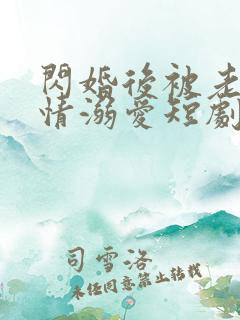 閃婚後被老
情溺愛短劇
司雪洛
未经同意禁止转载